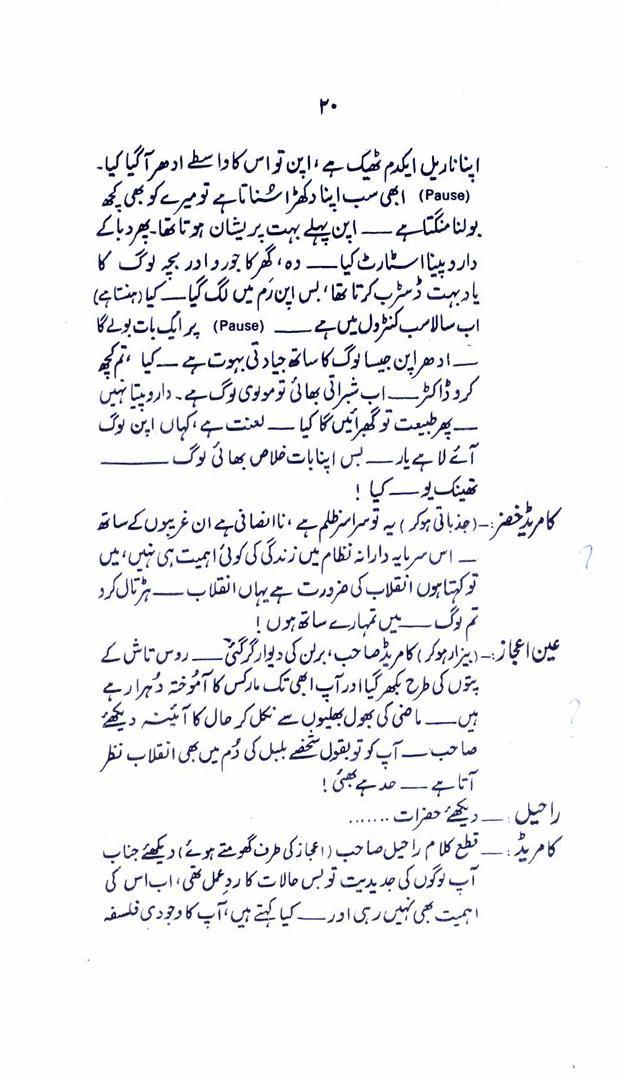 ۲۰
اپنا ناریل ایکدم ٹھیک ہے ، اپن تو اس کا واسطے ادھر آ گیا کیا۔
(Pause) ابھی سب اپنا دکھڑا سُناتا ہے تو میرے کو بھی کچھ
بولنا منگتا ہے ــــ اپن پہلے بہت پریشان ہوتا تھا۔ پھر دبا کے
دارو پینا اسٹارٹ کیا ــــ وہ ، گھر کا جورو اور بچہ لوگ کا
یاد بہت ڈسٹرب کرتا تھا ، بس اپن رَم میں لگ گیا ــــ کیا (ہنستا ہے)
اب سالا سب کنٹرول میں ہے ــــ (Pause) پر ایک بات بولے گا
ــــ ادھر اپن جیسا لوگ کا ساتھ جیادتی بہوت ہے ــــ کیا ، تم کچھ
کرو ڈاکٹر ــــ اب شبراتی بھائی تو مولوی لوگ ہے۔ دارو پیتا نہیں
ــــ پھر طبیعت تو گھبرائیں گا کیا ــــ لعنت ہے ، کہاں اپن لوگ
آئے لا ہے یار ــــ بس اپنا بات خلاص بھائی لوگ ــــــــ
تھینک یو ــــ کیا !
کامریڈ خضر :۔ (جذباتی ہو کر) یہ تو سراسر ظلم ہے ، نا انصافی ہے ان غریبوں کے ساتھ
ــــ اس سرمایہ دارانہ نظام میں زندگی کی کوئی اہمیت ہی نہیں ، میں
تو کہتا ہوں انقلاب کی ضرورت ہے یہاں انقلاب ــــ ہڑتال کرو
تم لوگ ــــ میں تمہارے ساتھ ہوں !
عین اعجاز :۔ (بیزار ہو کر) کامریڈ صاحب ، برلن کی دیوار گر گئی ــــ روس تاش کے
پتوں کی طرح بکھر گیا اور آپ ابھی تک مارکس کا آموختہ دُہرا رہے
ہیں ــــ ماضی کی بھول بھلیوں سے نکل کر حال کا آئینہ دیکھئے
صاحب ــــ آپ کو تو بقول شخصے بلبل کی دُم میں بھی انقلاب نظر
آتا ہے ــــ حد ہے بھئی !
راحیل :ــــ دیکھئے حضرات .......
کامریڈ :ــــ قطع کلام راحیل صاحب (اعجاز کی طرف گھومتے ہوئے) دیکھئے جناب
آپ لوگوں کی جدیدیت تو بس حالات کا ردِ عمل تھی ، اب اس کی
اہمیت بھی نہیں رہی اور ــــ کیا کہتے ہیں ، آپ کا وجودی فلسفہ